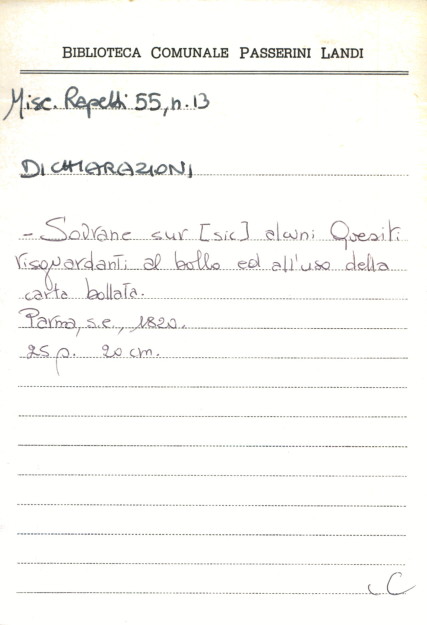 BIBLIOTECA COMUNALE PASSERINI LANDI
Misc. Rapetti 55, n. 13
DICHIARAZIONI
- Sovrane sur [sic] alcuni Quesiti
risguardanti al bollo ed all'uso della
carta bollata.
Parma, s.e., 1820.
25 p. 20 cm.
C